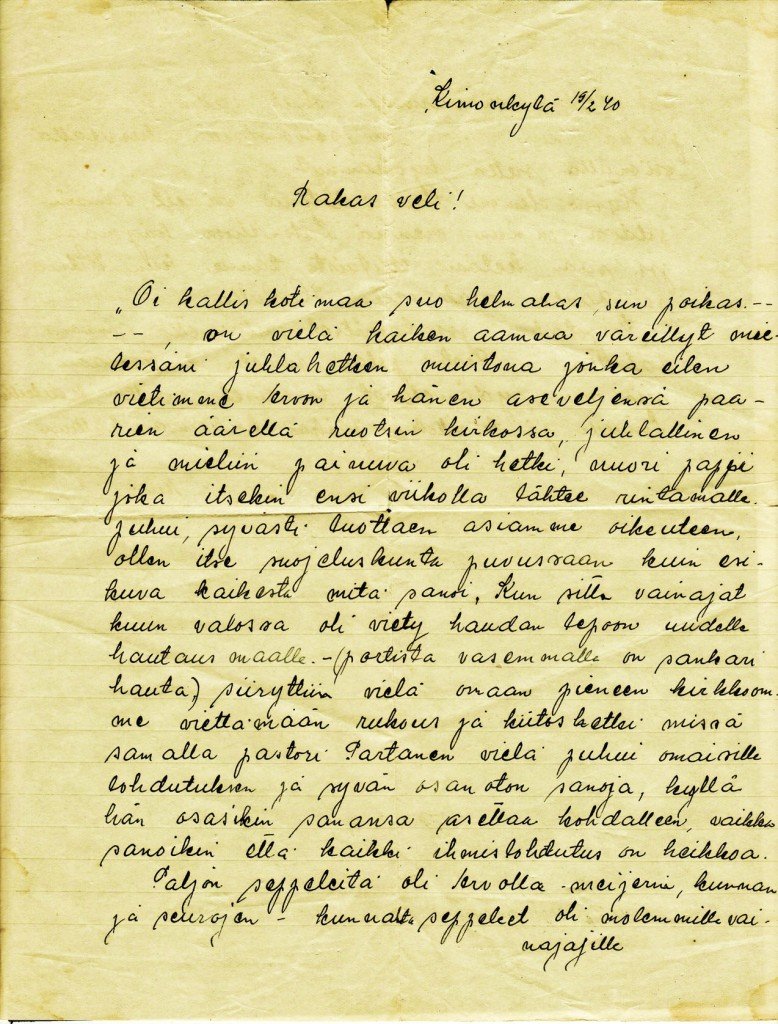 Kimonkylä 19/2 40
Rakas veli!
„Oi kallis kotimaa suo helmahas, sun poikas.--
--, on vielä kaiken aamua väreillyt mie-
lessäni juhlahetken muistona jonka eilen
vietimme Ervon ja hänen aseveljensä paa-
rien äärellä ruotsin kirkossa, juhlallinen
ja mieliin painuva oli hetki, nuori pappi
joka itsekin ensi viikolla lähtee rintamalle
puhui, syvästi luottaen asiamme oikeuteen,
ollen itse suojeluskunta puvussaan kuin esi-
kuva kaikesta mitä sanoi. Kun sitte vainajat
kuun valossa oli viety haudan lepoon uudelle
hautausmaalle. - (portista vasemmalle on sankari
hauta) siiryttiin vielä omaan pieneen kirkkoom-
me viettämään rukous ja kiitoshetki missä
samalla pastori Partanen vielä puhui omaisille
lohdutuksen ja syvän osanoton sanoja, kyllä
hän osasikin sanansa asettaa kohdalleen, vaikka
sanoikin että kaikki ihmislohdutus on heikkoa.
Paljon seppeleitä oli Ervolla meijerin, kunnan
ja seurojen - kunnalta seppeleet oli molemmille vai-
najajille